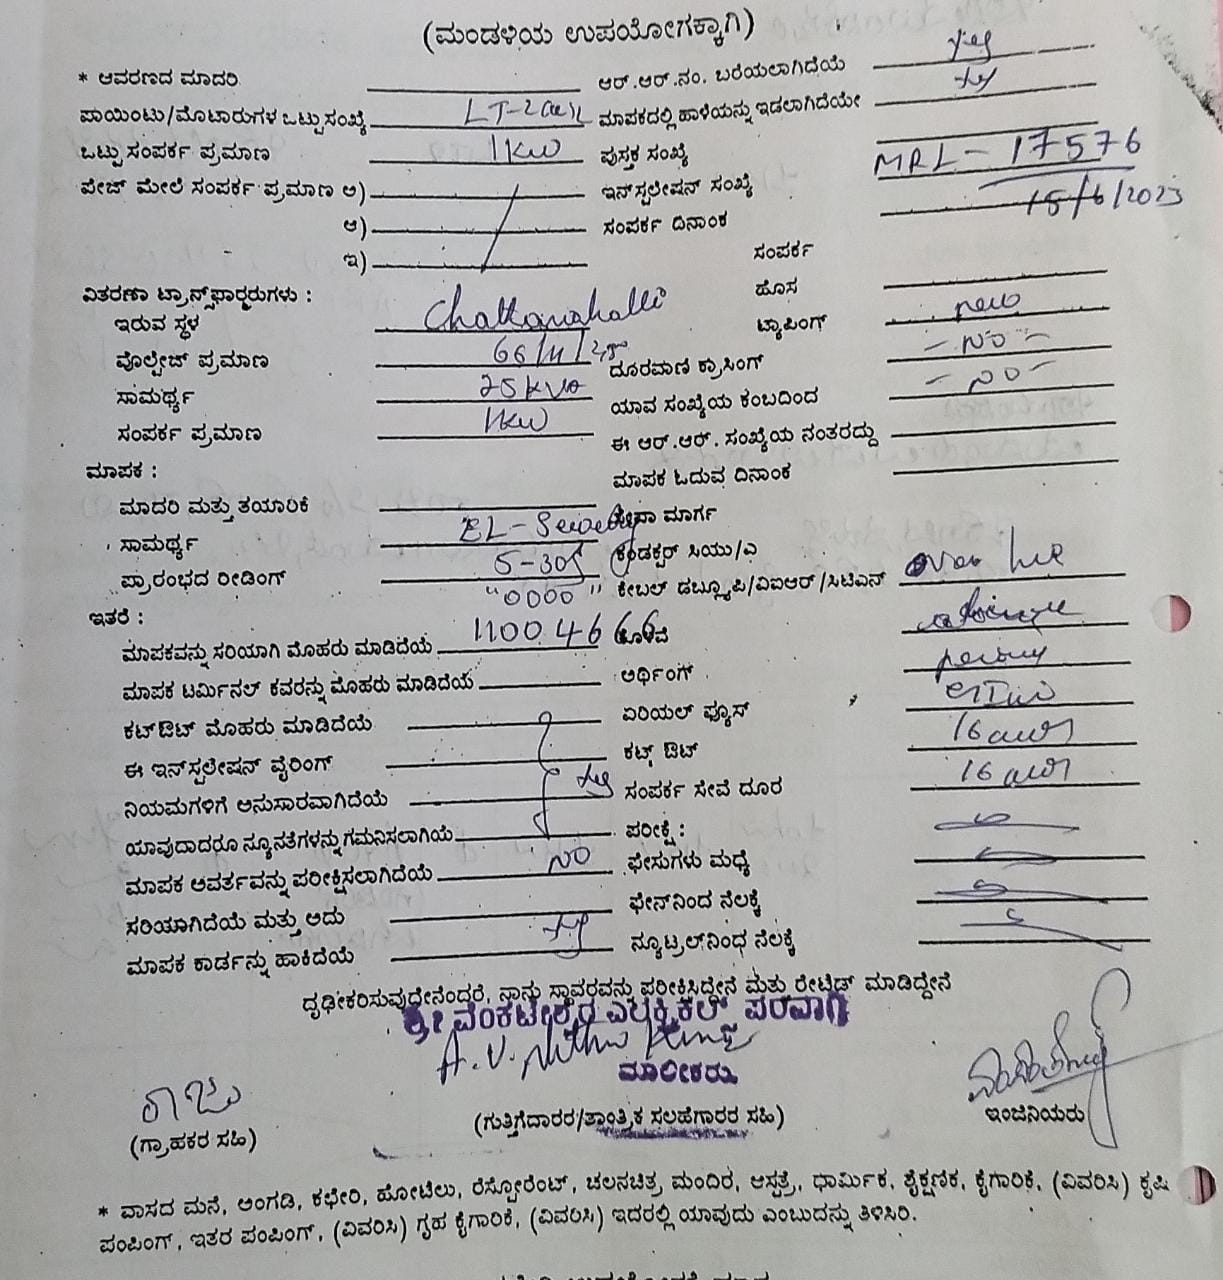 (ಮಂಡಳಿಯ ಉಪಯೋಗಕ್ಕಾಗಿ)
* ಆವರಣದ ಮಾದರಿ ಆರ್.ಆರ್.ನಂ. ಬರೆಯಲಾಗಿದೆಯೆ yes
ಪಾಯಿಂಟು/ಮೋಟಾರುಗಳ ಒಟ್ಟು ಸಂಖ್ಯೆ LT-2 ಮಾಪಕದಲ್ಲಿ ಹಾಳೆಯನ್ನು ಇಡಲಾಗಿದೆಯೇ yes
ಒಟ್ಟು ಸಂಪರ್ಕ ಪ್ರಮಾಣ 1KW ಪುಸ್ತಕ ಸಂಖ್ಯೆ
ಪೇಜ್ ಮೇಲೆ ಸಂಪರ್ಕ ಪ್ರಮಾಣ ಅ) ಇನ್‌ಸ್ಟಲೇಷನ್ ಸಂಖ್ಯೆ MRL-17576
ಆ) ಸಂಪರ್ಕ ದಿನಾಂಕ 15/6/2023
ಇ) ಸಂಪರ್ಕ
ವಿತರಣಾ ಟ್ರಾನ್ಸ್‌ಫಾರ್‍ಮರುಗಳು : ಹೊಸ new
ಇರುವ ಸ್ಥಳ Chattanahalli ಟ್ಯಾಪಿಂಗ್ - NO -
ವೊಲ್ಟೇಜ್ ಪ್ರಮಾಣ 66/11/ ದೂರವಾಣಿ ಕ್ರಾಸಿಂಗ್ - NO -
ಸಾಮರ್ಥ್ಯ 25KVA ಯಾವ ಸಂಖ್ಯೆಯ ಕಂಬದಿಂದ
ಸಂಪರ್ಕ ಪ್ರಮಾಣ 1KW ಈ ಆರ್.ಆರ್. ಸಂಖ್ಯೆಯ ನಂತರದ್ದು
ಮಾಪಕ : ಮಾಪಕ ಓದುವ ದಿನಾಂಕ
ಮಾದರಿ ಮತ್ತು ತಯಾರಿಕೆ EL- ಸೇವಾ ಮಾರ್ಗ
ಸಾಮರ್ಥ್ಯ 5-30 ಕಂಡಕ್ಟರ್ ಸಿಯು/ಎ
ಪ್ರಾರಂಭದ ರೀಡಿಂಗ್ "0000" ಕೇಬಲ್ ಡಬ್ಲ್ಯೂಪಿ/ವಿಐಆರ್/ಸಿಟಿಎಸ್
ಇತರೆ :
ಮಾಪಕವನ್ನು ಸರಿಯಾಗಿ ಮೊಹರು ಮಾಡಿದೆಯೆ 11004666 ಕೊಳವೆ
ಮಾಪಕ ಟರ್ಮಿನಲ್ ಕವರನ್ನು ಮೊಹರು ಮಾಡಿದೆಯೆ ಅರ್ಥಿಂಗ್
ಕಟ್‌ಔಟ್ ಮೊಹರು ಮಾಡಿದೆಯೆ ಏರಿಯಲ್ ಫ್ಯೂಸ್ 16
ಈ ಇನ್‌ಸ್ಟಲೇಷನ್ ವೈರಿಂಗ್ ಕಟ್ಟ್ ಔಟ್ 16
ನಿಯಮಗಳಿಗೆ ಅನುಸಾರವಾಗಿದೆಯೆ yes ಸಂಪರ್ಕ ಸೇವೆ ದೂರ
ಯಾವುದಾದರೂ ನ್ಯೂನತೆಗಳನ್ನು ಗಮನಿಸಲಾಗಿಯೆ ಪರೀಕ್ಷೆ :
ಮಾಪಕ ಆವರ್ತವನ್ನು ಪರೀಕ್ಷಿಸಲಾಗಿದೆಯೆ NO ಫೇಸುಗಳು ಮಧ್ಯೆ
ಸರಿಯಾಗಿದೆಯೆ ಮತ್ತು ಅದು ಫೇಸ್‌ನಿಂದ ನೆಲಕ್ಕೆ
ಮಾಪಕ ಕಾರ್ಡನ್ನು ಹಾಕಿದೆಯೆ yes ನ್ಯೂಟ್ರಲ್‌ನಿಂಧ ನೆಲಕ್ಕೆ
ದೃಢೀಕರಿಸುವುದೇನೆಂದರೆ, ನಾನು ಸ್ಥಾವರವನ್ನು ಪರೀಕ್ಷಿಸಿದ್ದೇನೆ ಮತ್ತು ರೇಟೆಡ್ ಮಾಡಿದ್ದೇನೆ
ಶ್ರೀ ವೆಂಕಟೇಶ್ವರ ಎಲೆಕ್ಟ್ರಿಕಲ್ ಪರವಾಗಿ
ಮಾಲೀಕರು
ರಾಜು
(ಗ್ರಾಹಕರ ಸಹಿ) (ಗುತ್ತಿಗೆದಾರರ/ತಾಂತ್ರಿಕ ಸಲಹೆಗಾರರ ಸಹಿ) ಇಂಜಿನಿಯರು
* ವಾಸದ ಮನೆ, ಅಂಗಡಿ, ಕಛೇರಿ, ಹೋಟೆಲು, ರೆಸ್ಟೋರೆಂಟ್, ಚಲನಚಿತ್ರ ಮಂದಿರ, ಆಸ್ಪತ್ರೆ, ಧಾರ್ಮಿಕ, ಶೈಕ್ಷಣಿಕ, ಕೈಗಾರಿಕೆ, (ವಿವರಿಸಿ) ಕೃಷಿ
ಪಂಪಿಂಗ್, ಇತರ ಪಂಪಿಂಗ್, (ವಿವರಿಸಿ) ಗೃಹ ಕೈಗಾರಿಕೆ, (ವಿವರಿಸಿ) ಇದರಲ್ಲಿ ಯಾವುದು ಎಂಬುದನ್ನು ತಿಳಿಸಿರಿ.